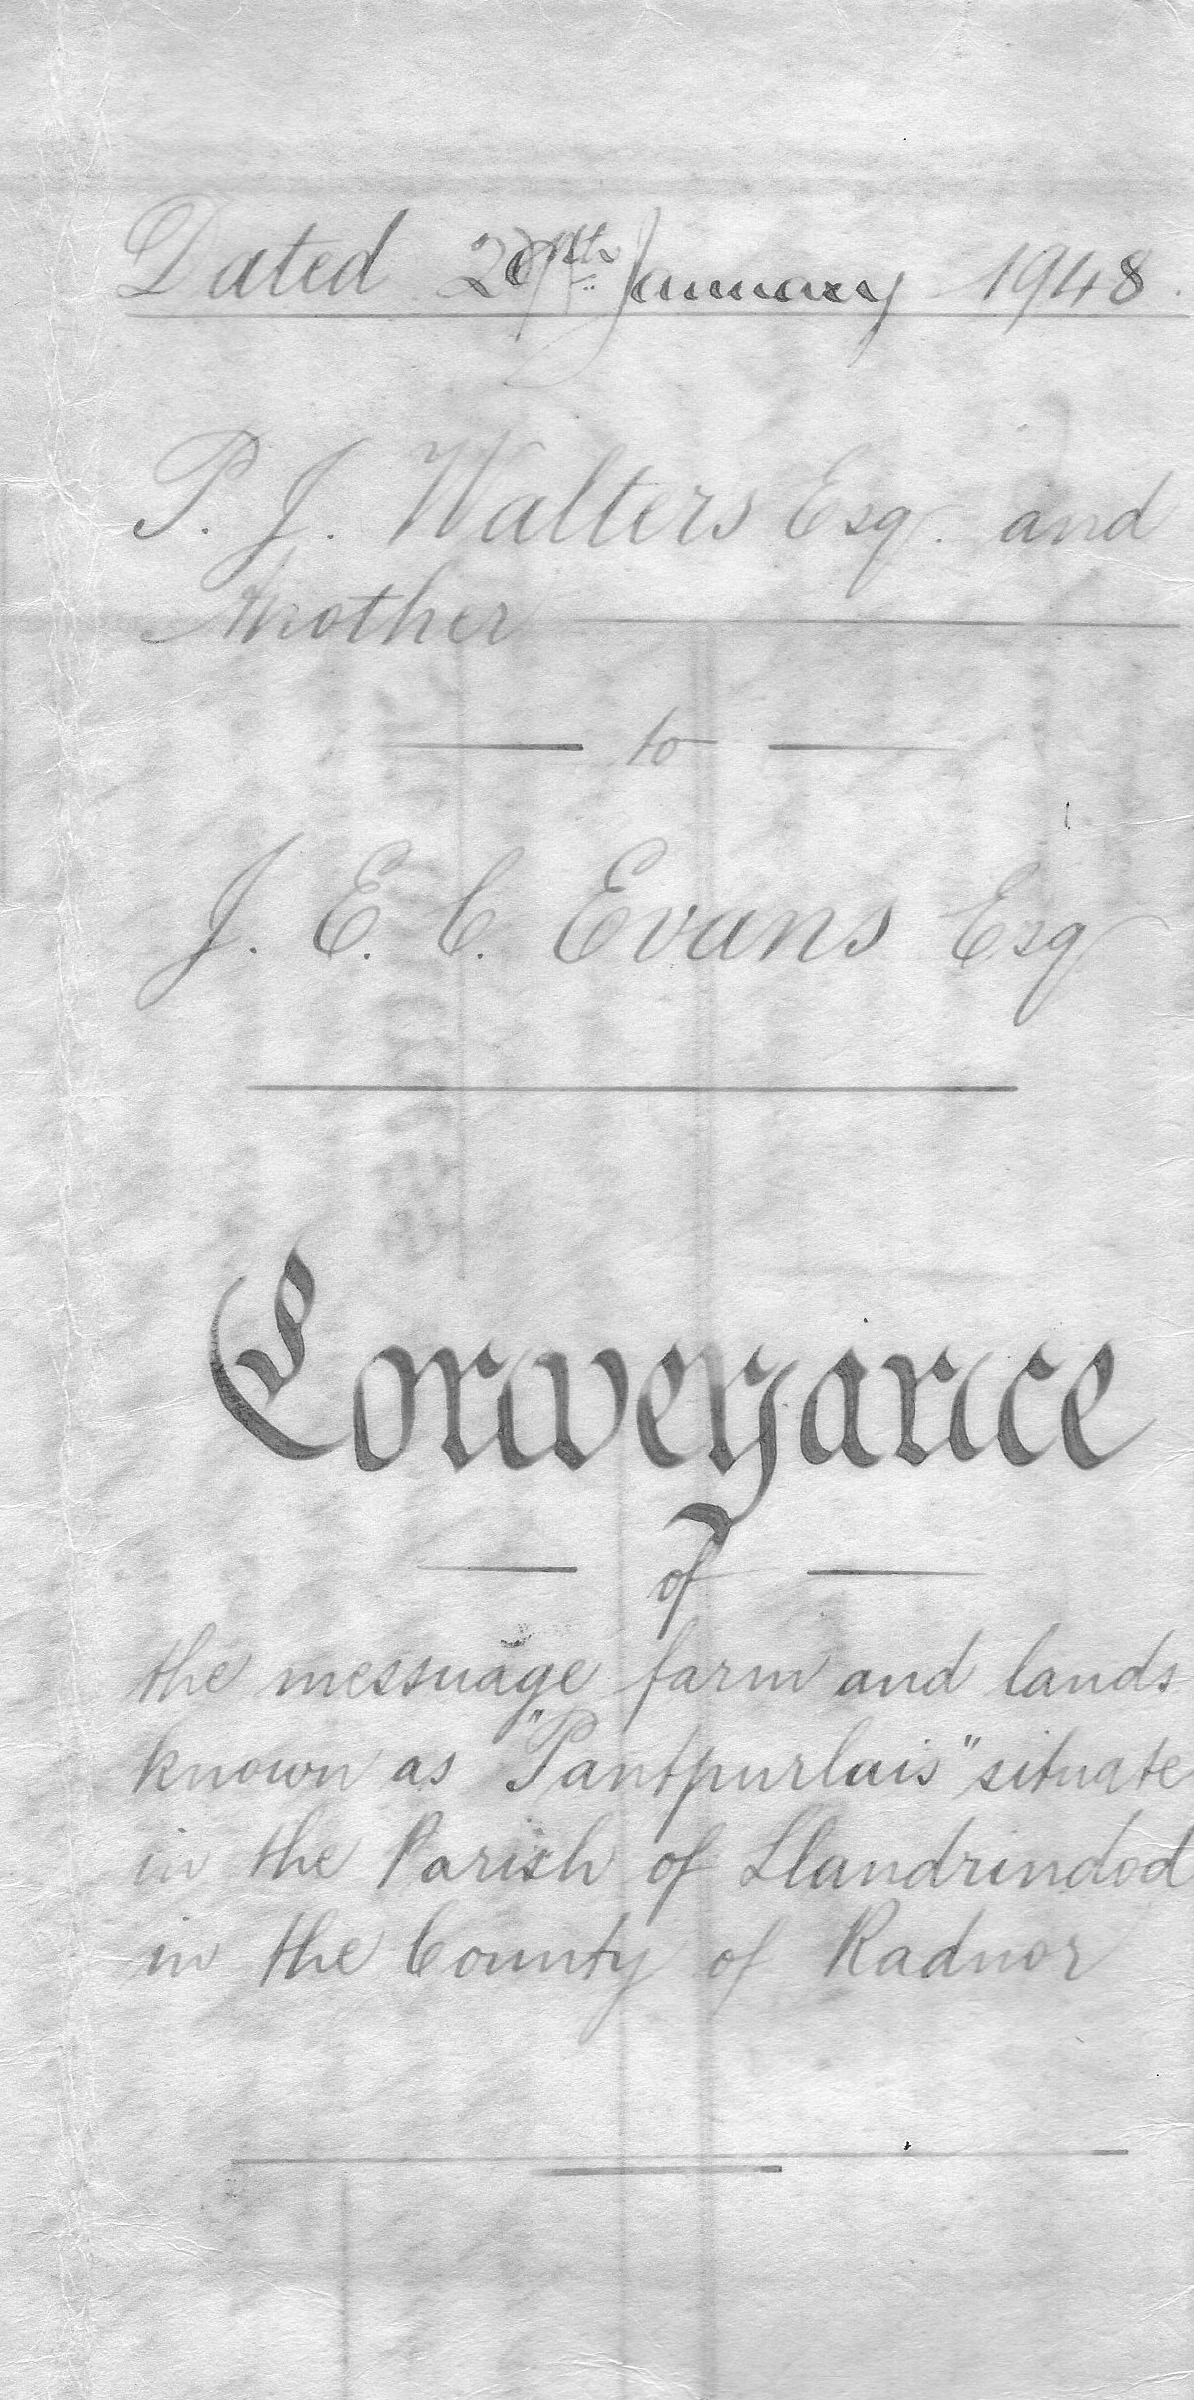 Dated January 1948.
P. J. Walters Esq. and
Another
to
J. E. C. Evans Esq
Conveyance
of
the messuage farm and lands
known as "Pantpurlais" situate
in the Parish of Llandrindod
in the County of Radnor